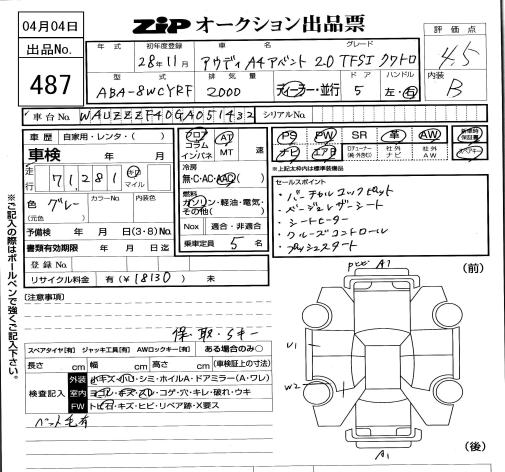 04月04日
ZIPオークション出品票
出品No.
487
年式 初年度登録 車名 グレード
28年11月 アウディA4アバント 2.0 TFSI クワトロ
型式 排気量 ドア ハンドル
ABA-8WCYRF 2000 ディーラー・並行 5 左・右
評価点
4.5
内装
B
車台No. WAUZZZF40GA051432 シリアルNo.
車歴 自家用・レンタ( )
車検 年 月
走行 71,281 km マイル
色 グレー (元色) カラーNo. 内装色
予備検 年 月 日(3・8)No.
書類有効期限 年 月 日迄
登録No.
リサイクル料金 有(¥18130)
フロア コラム インパネ AT MT 速
冷房
無・C・AC・AAC
燃料
ガソリン・軽油・電気・その他( )
Nox 適合・非適合
乗車定員 5 名
PS PW SR 革 AW 新車時保証書
ナビ エアB 社外ナビ 社外AW スペアキー
※上記太枠内は標準装備品
セールスポイント
・バーチャルコックピット
・シートヒーター
・クルーズコントロール
・プッシュスタート
※ご記入の際はボールペンで強くご記入下さい。
[注意事項]
保・取・Sキー
スペアタイヤ[有] ジャッキ工具[有] AWロックキー[有] ある場合のみ○
長さ cm 幅 cm 高さ cm (車検証上の寸法)
検査記入
外装 小キズ・小凹・シミ・ホイルA・ドアミラー(A・ワレ)
室内 ヨゴレ・キズ・スレ・コゲ・穴・キレ・破れ・ウキ
FW トビ石・キズ・ヒビ・リペア跡・X要ス
ペット毛有
(前)
A1
U1
W2
A1
(後)